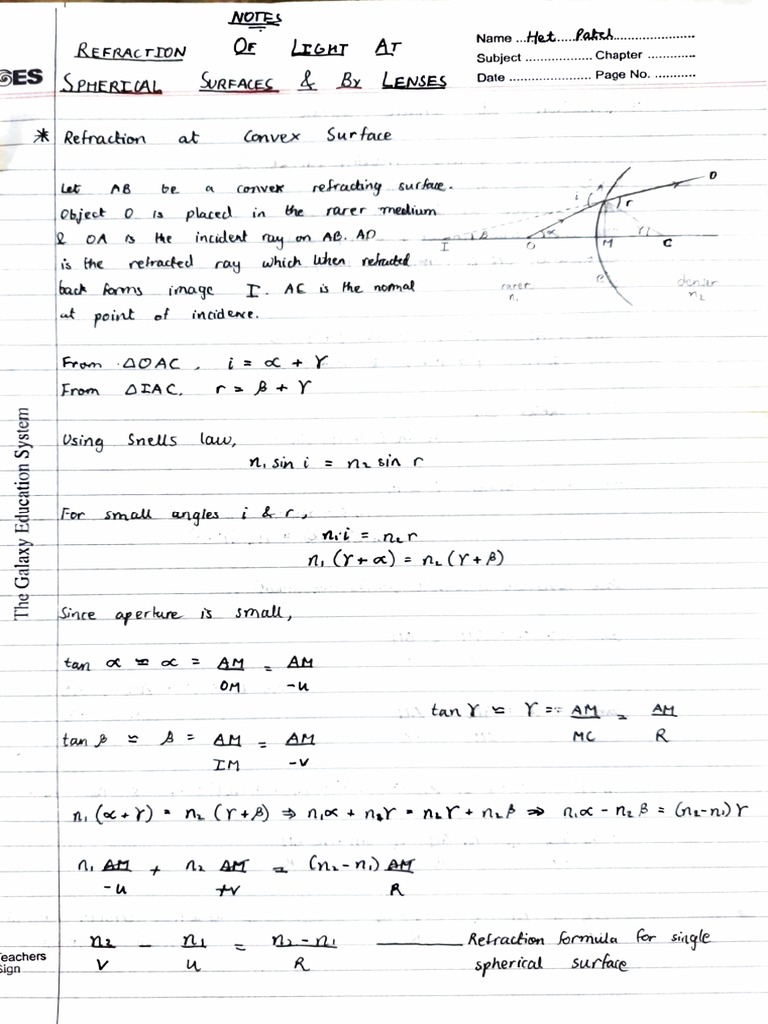 NOTES
REFRACTION OF LIGHT AT
SPHERICAL SURFACES & BY LENSES
Name ...Het Patel...
Subject .................. Chapter .............
Date ...................... Page No. ...........
GES
* Refraction at Convex Surface
Let AB be a convex refracting surface.
Object O is placed in the rarer medium
& OA is the incident ray on AB. AD
is the refracted ray which when refracted
back forms image I. AC is the normal
at point of incidence.
D
i r
I β O α M γ C
B
rarer n₁
denser n₂
From ΔOAC, i = α + γ
From ΔIAC, r = β + γ
Using Snells law,
n₁ sin i = n₂ sin r
For small angles i & r,
n₁i = n₂r
n₁ (γ + α) = n₂ (γ + β)
Since aperture is small,
tan α ≈ α = AM/OM = AM/-u
tan γ ≈ γ = AM/MC = AM/R
tan β ≈ β = AM/IM = AM/-v
n₁ (α + γ) = n₂ (γ + β) ⇒ n₁α + n₁γ = n₂γ + n₂β ⇒ n₁α - n₂β = (n₂-n₁)γ
n₁ AM/-u + n₂ AM/+v = (n₂-n₁) AM/R
n₂/v - n₁/u = n₂-n₁/R ——— Refraction formula for single
spherical surface
The Galaxy Education System
Teachers
Sign